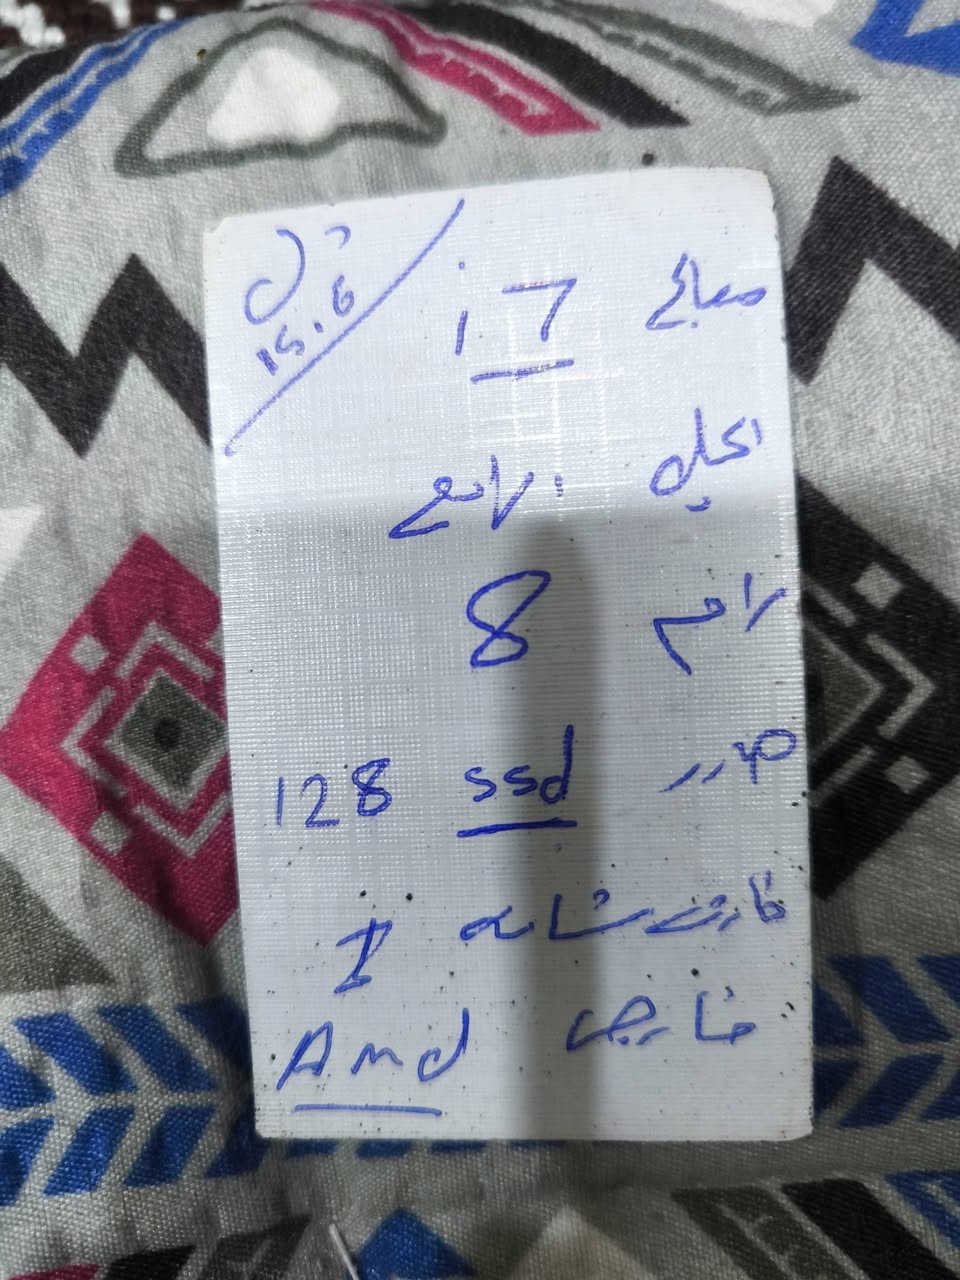 15.6
معالج i7
الجيل الرابع
رام 8
هارد ssd 128
كارت شاشه 1
خارجي Amd